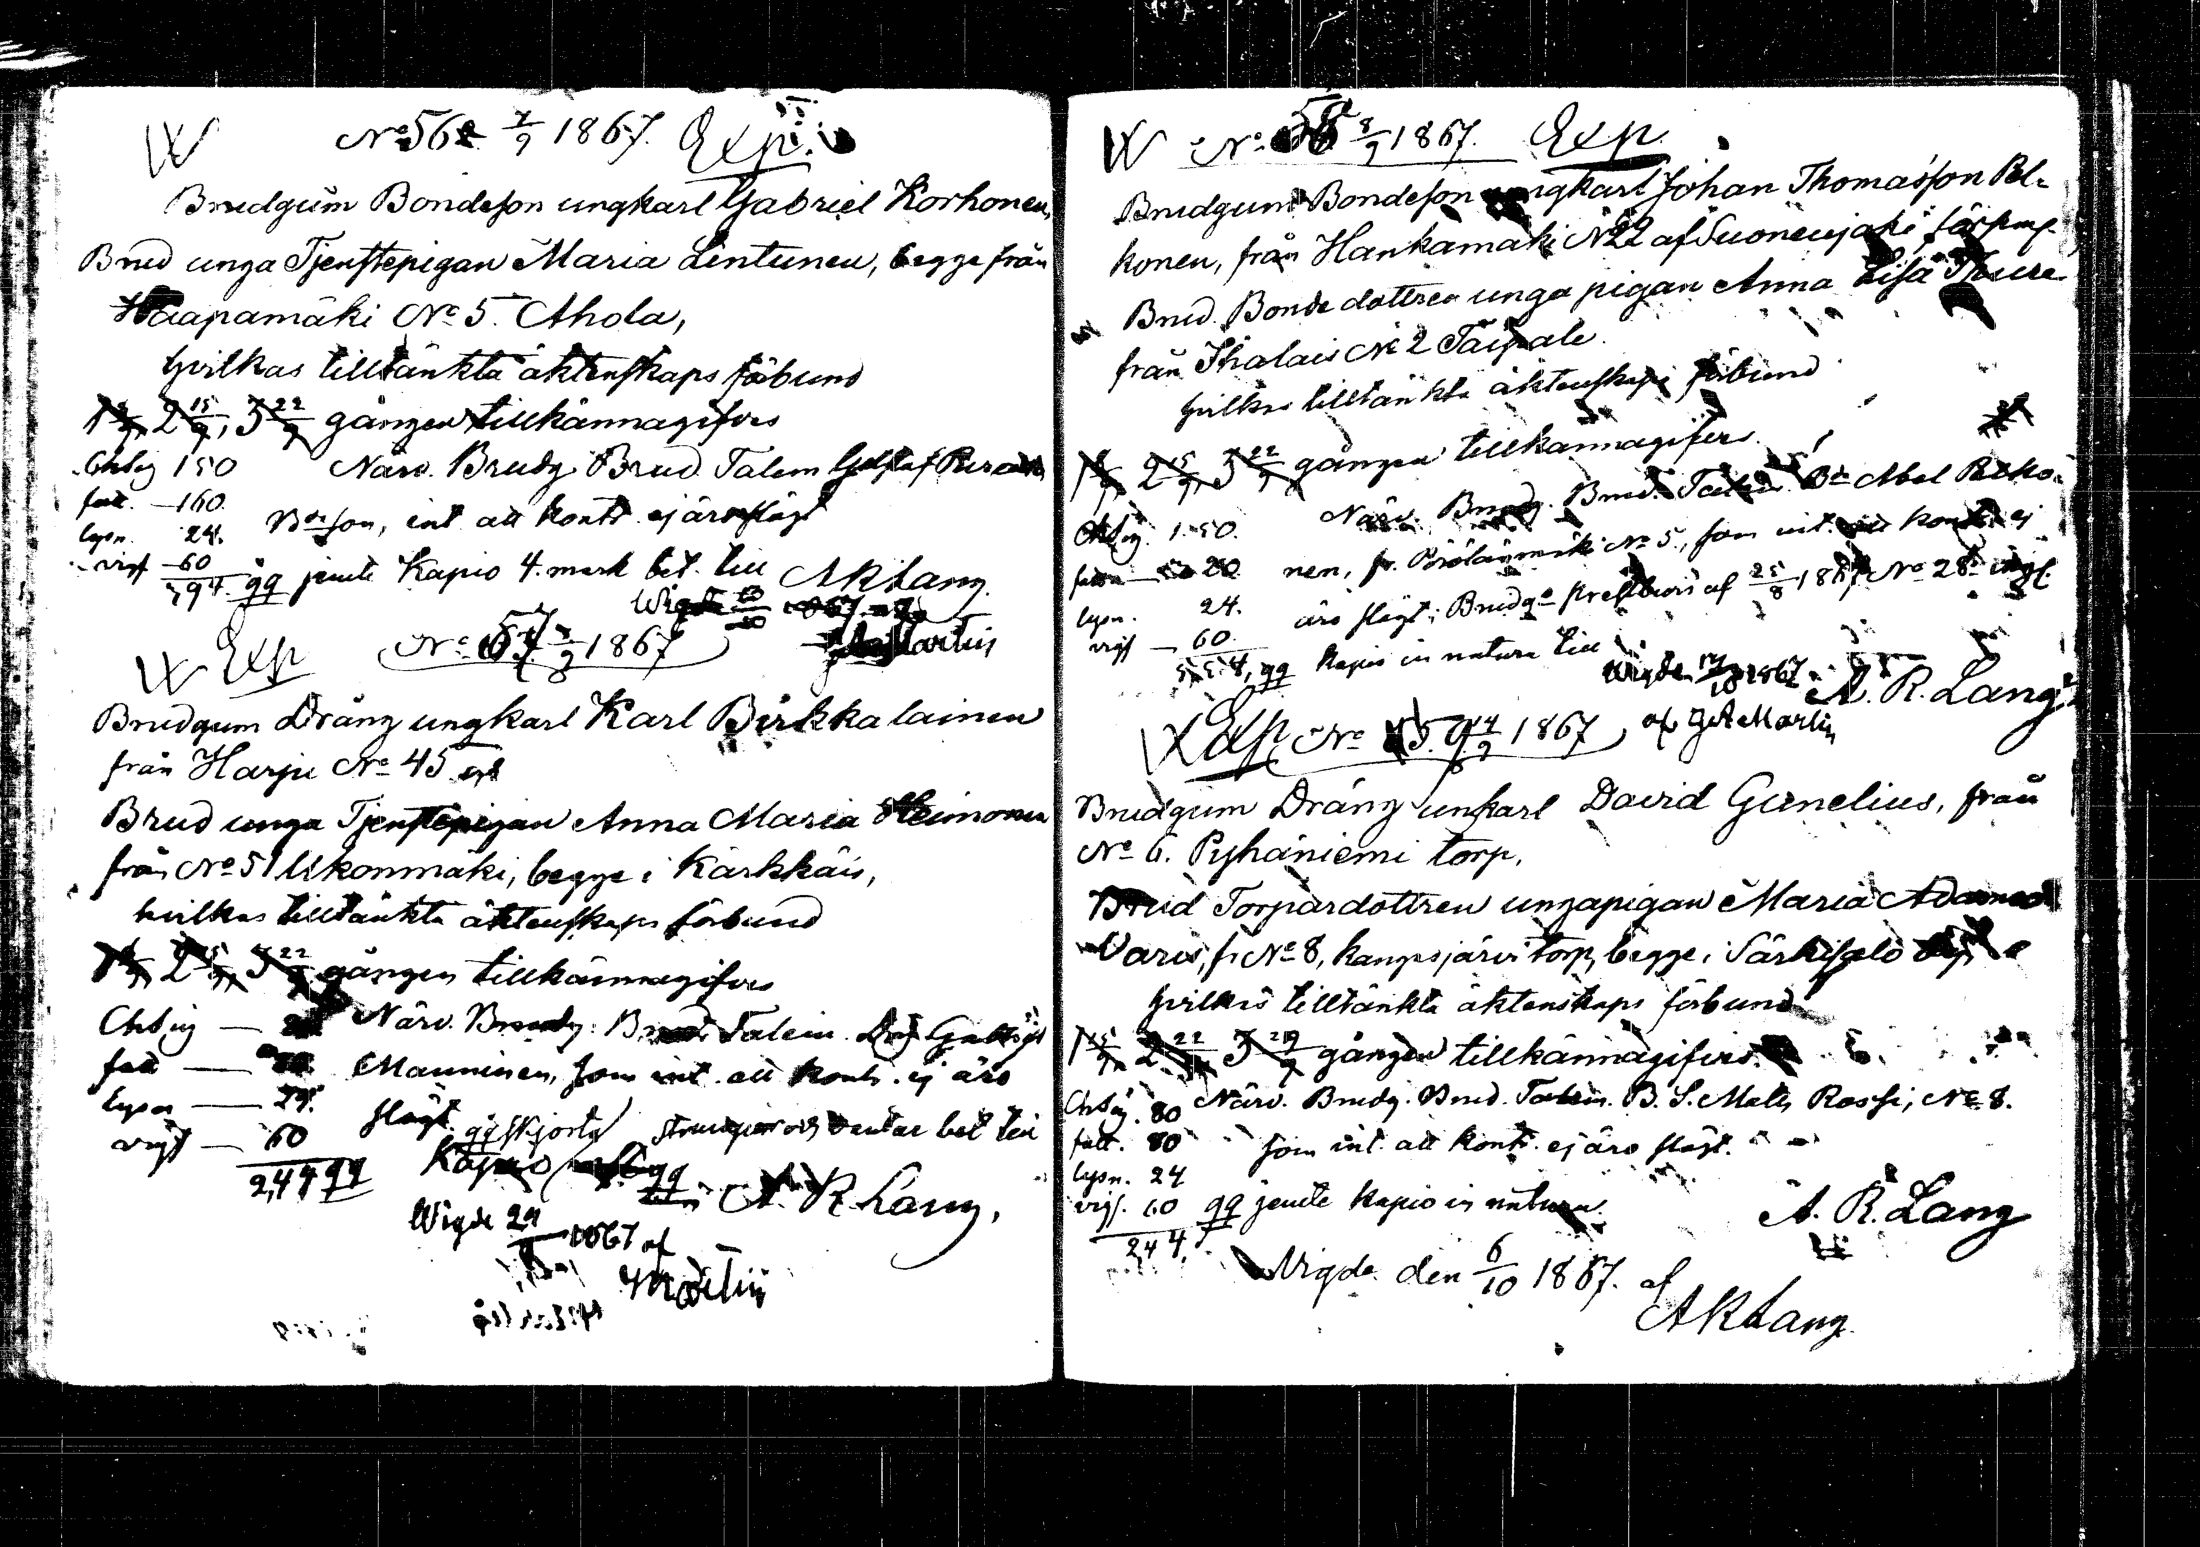 No 56 7/9 1867. Exp.
Brudgum Bondeson ungkarl Gabriel Korhonen,
Brud unga Tjenstepigan Maria Lintunen, begge från
Haapamäki No 5. Ahola,
hvilkas tilltänkta äktenskaps förbund
1 8/9, 2 15/9, 3 22/9 gången tillkännagifves
Chtsig 150 Närv. Brudg. Brud. Talem. Gustaf
fatt. 160.
Bdeson, int. att kontr. ej äro slägt
lysn. 24.
vigs 60
394. qq jemte Kapio 4. mark bet. till ARLang.
Wigde 1867
Martin
Exp No 57 7/9 1867
Brudgum Dräng ungkarl Karl Birkkalainen
från Harju No 45
Brud unga Tjenstepigan Anna Maria Heimonen
från No 51 Ukonmäki, begge i Kärkkäis,
hvilkas tilltänkta äktenskaps förbund
1 8/9, 2 15/9, 3 22/9 gången tillkännagifves
Chtsig Närv. Brudg. Brud. Talem.
fatt Manninen, som int. att kontr. ej äro
lysn 24.
slägt. qq skjorta och vantar bet till
vigs 60
244 qq Kapio qq
A. R. Lang.
Wigde 29 1867 af
Martin
No 58 8/9 1867. Exp.
Brudgum Bondeson ungkarl Johan Thomasson Pel-
konen, från Hankamäki No 22 af Suonenjoki
Brud. Bonde dottren unga pigan Anna Lisa
från Ihalais No 2 Taipale.
hvilkas tilltänkta äktenskaps förbund
1 8/9 2 15/9 3 22/9 gången tillkännagifves.
Närv. Brudg. Brud. Talem. Bn Abel Pelko-
Chtsig. 1.50.
nen, fr. No 5., som int. att kontr. ej
20
äro slägt; Brudgs af 25/8 1867 No 28
lysn. 24.
vigs 60.
qq Kapio in natura till
Wigde 1867 A. R. Lang.
af Martin
Exp No 59 14/9 1867
Brudgum Dräng unkarl David Gunelius, från
No 6. Pyhäniemi torp.
Brud Torpardottren ungapigan Maria
Varis, fr No 8, Kangasjärvi torp, begge i Särkisalo
hvilkas tilltänkta äktenskaps förbund
1 15/9 2 22/9 3 29/9 gången tillkännagifves.
Chtsig. 80 Närv. Brudg. Brud. Talem. B. S. Mats Rossi, No 8.
fatt. 80 som int. att kontr. ej äro slägt.
lysn. 24
vigs. 60 qq jemte Kapio in natura.
244.
A. R. Lang
Wigde den 6/10 1867. af
ARLang.